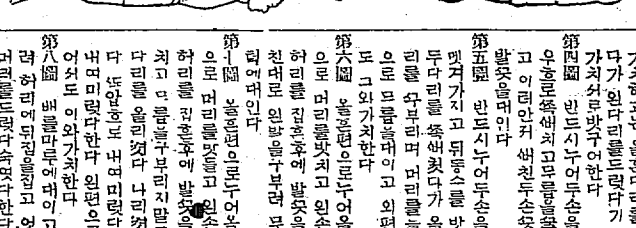 다가 왼다리를드럿다가
가치서로밧구어한다
第四圖 반드시누어두손을
우흐로쭉쌔치고무릅을꿀
고 이러안커 쌔친두손끗
발끗을대인다
第五圖 반드시누어두손을
멧겨가지고 뒤둥스를 밧
두다리를 쭉쌔칫다가 올
리를 구부리며 머리를들
으로 무릅을대이고 외편
도 그와가치한다
第六圖 올흔편으로누어올
으로 머리를밧치고 왼손
허리를 집흔후에 발끗을
친대로 왼발을구부려 무
릅에대인다
第七圖 올흔편으로누어올
으로 머리를밧들고 왼손
허리를 집흔후에 발끗을
치고 무릅을구부리지말고
다리를 올리첫다 나리첫
다 또압흐로 내여미럿다
내여미럿다한다 왼편으
어서도 이와가치한다
第八圖 배를마루에대이고
려 허리에뒤집을집고 엇
머리를드럿다숙엿다한다